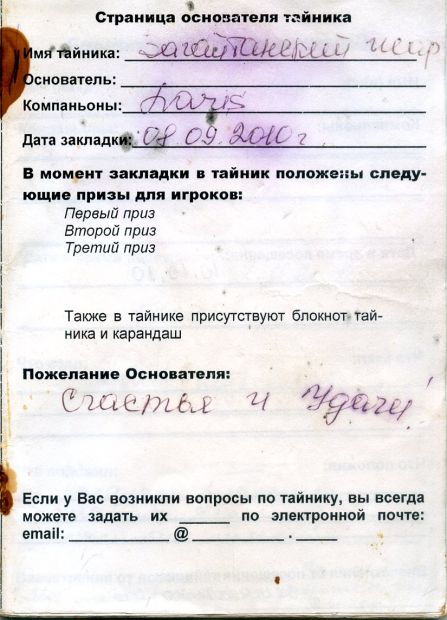 Страница основателя тайника
Имя тайника: Загайтанский шар
Основатель:
Компаньоны: Ivaris
Дата закладки: 08.09.2010 г
В момент закладки в тайник положены следу-
ющие призы для игроков:
Первый приз
Второй приз
Третий приз
Также в тайнике присутствуют блокнот тай-
ника и карандаш
Пожелание Основателя:
Счастья и Удачи!
Если у Вас возникли вопросы по тайнику, вы всегда
можете задать их ______ по электронной почте:
email: ____________ @ __________ . _____